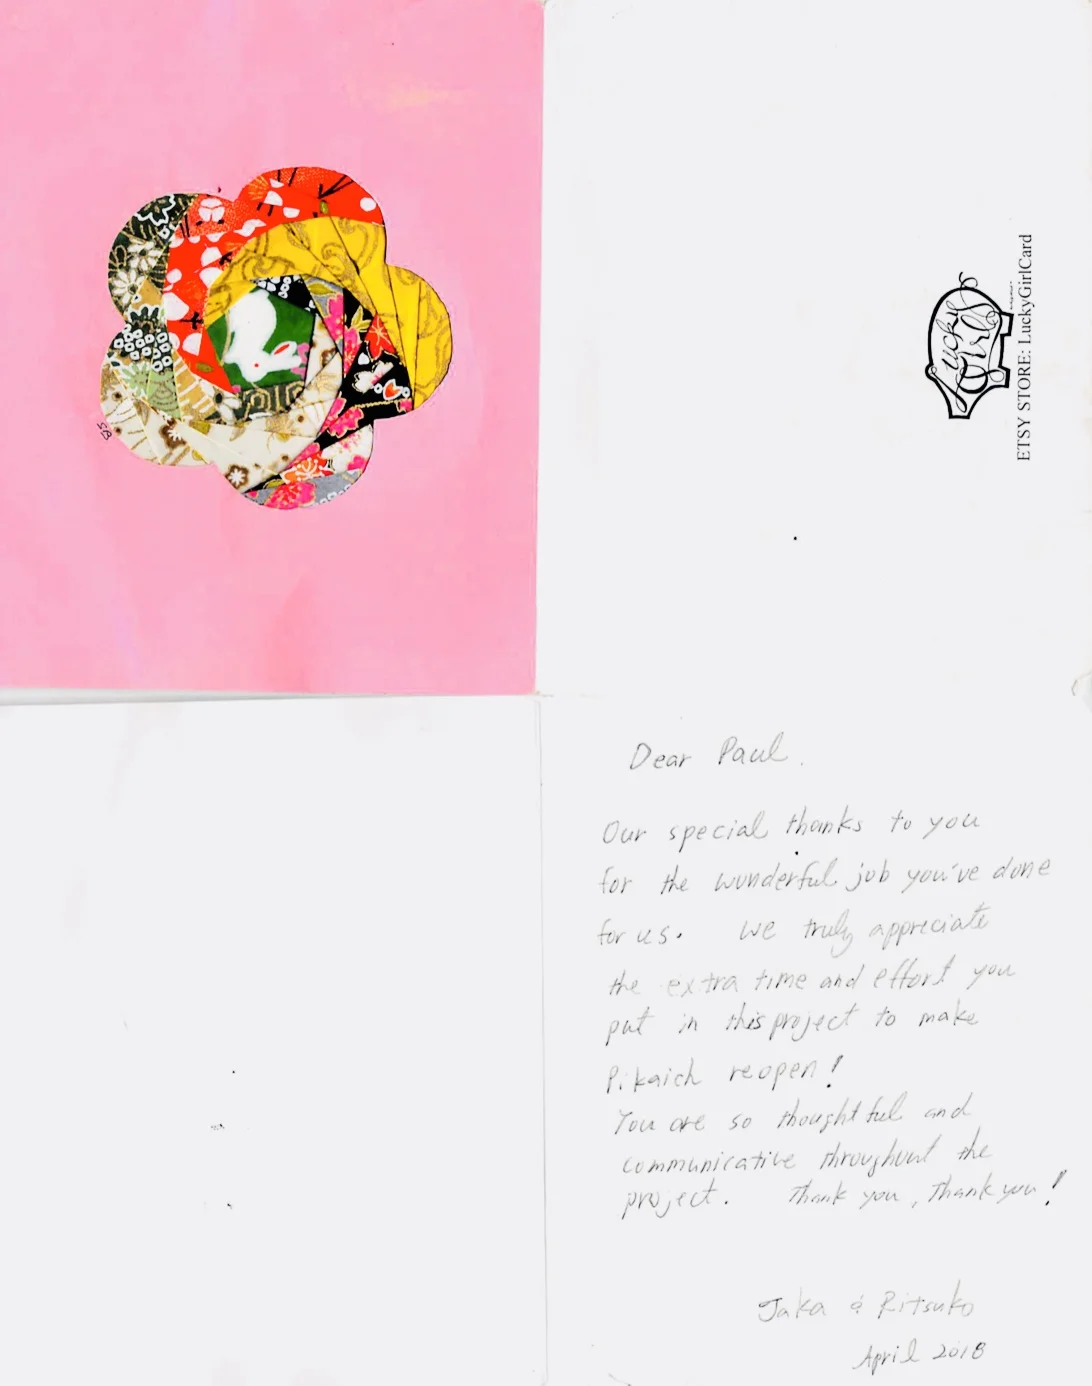 SB
Lucky
Girl
ETSY STORE: LuckyGirlCard
Dear Paul.
Our special thanks to you
for the wonderful job you've done
for us. We truly appreciate
the extra time and effort you
put in this project to make
Pikaich reopen!
You are so thoughtful and
communicative throughout the
project. Thank you, Thank you!
Jaka & Ritsuko
April 2018